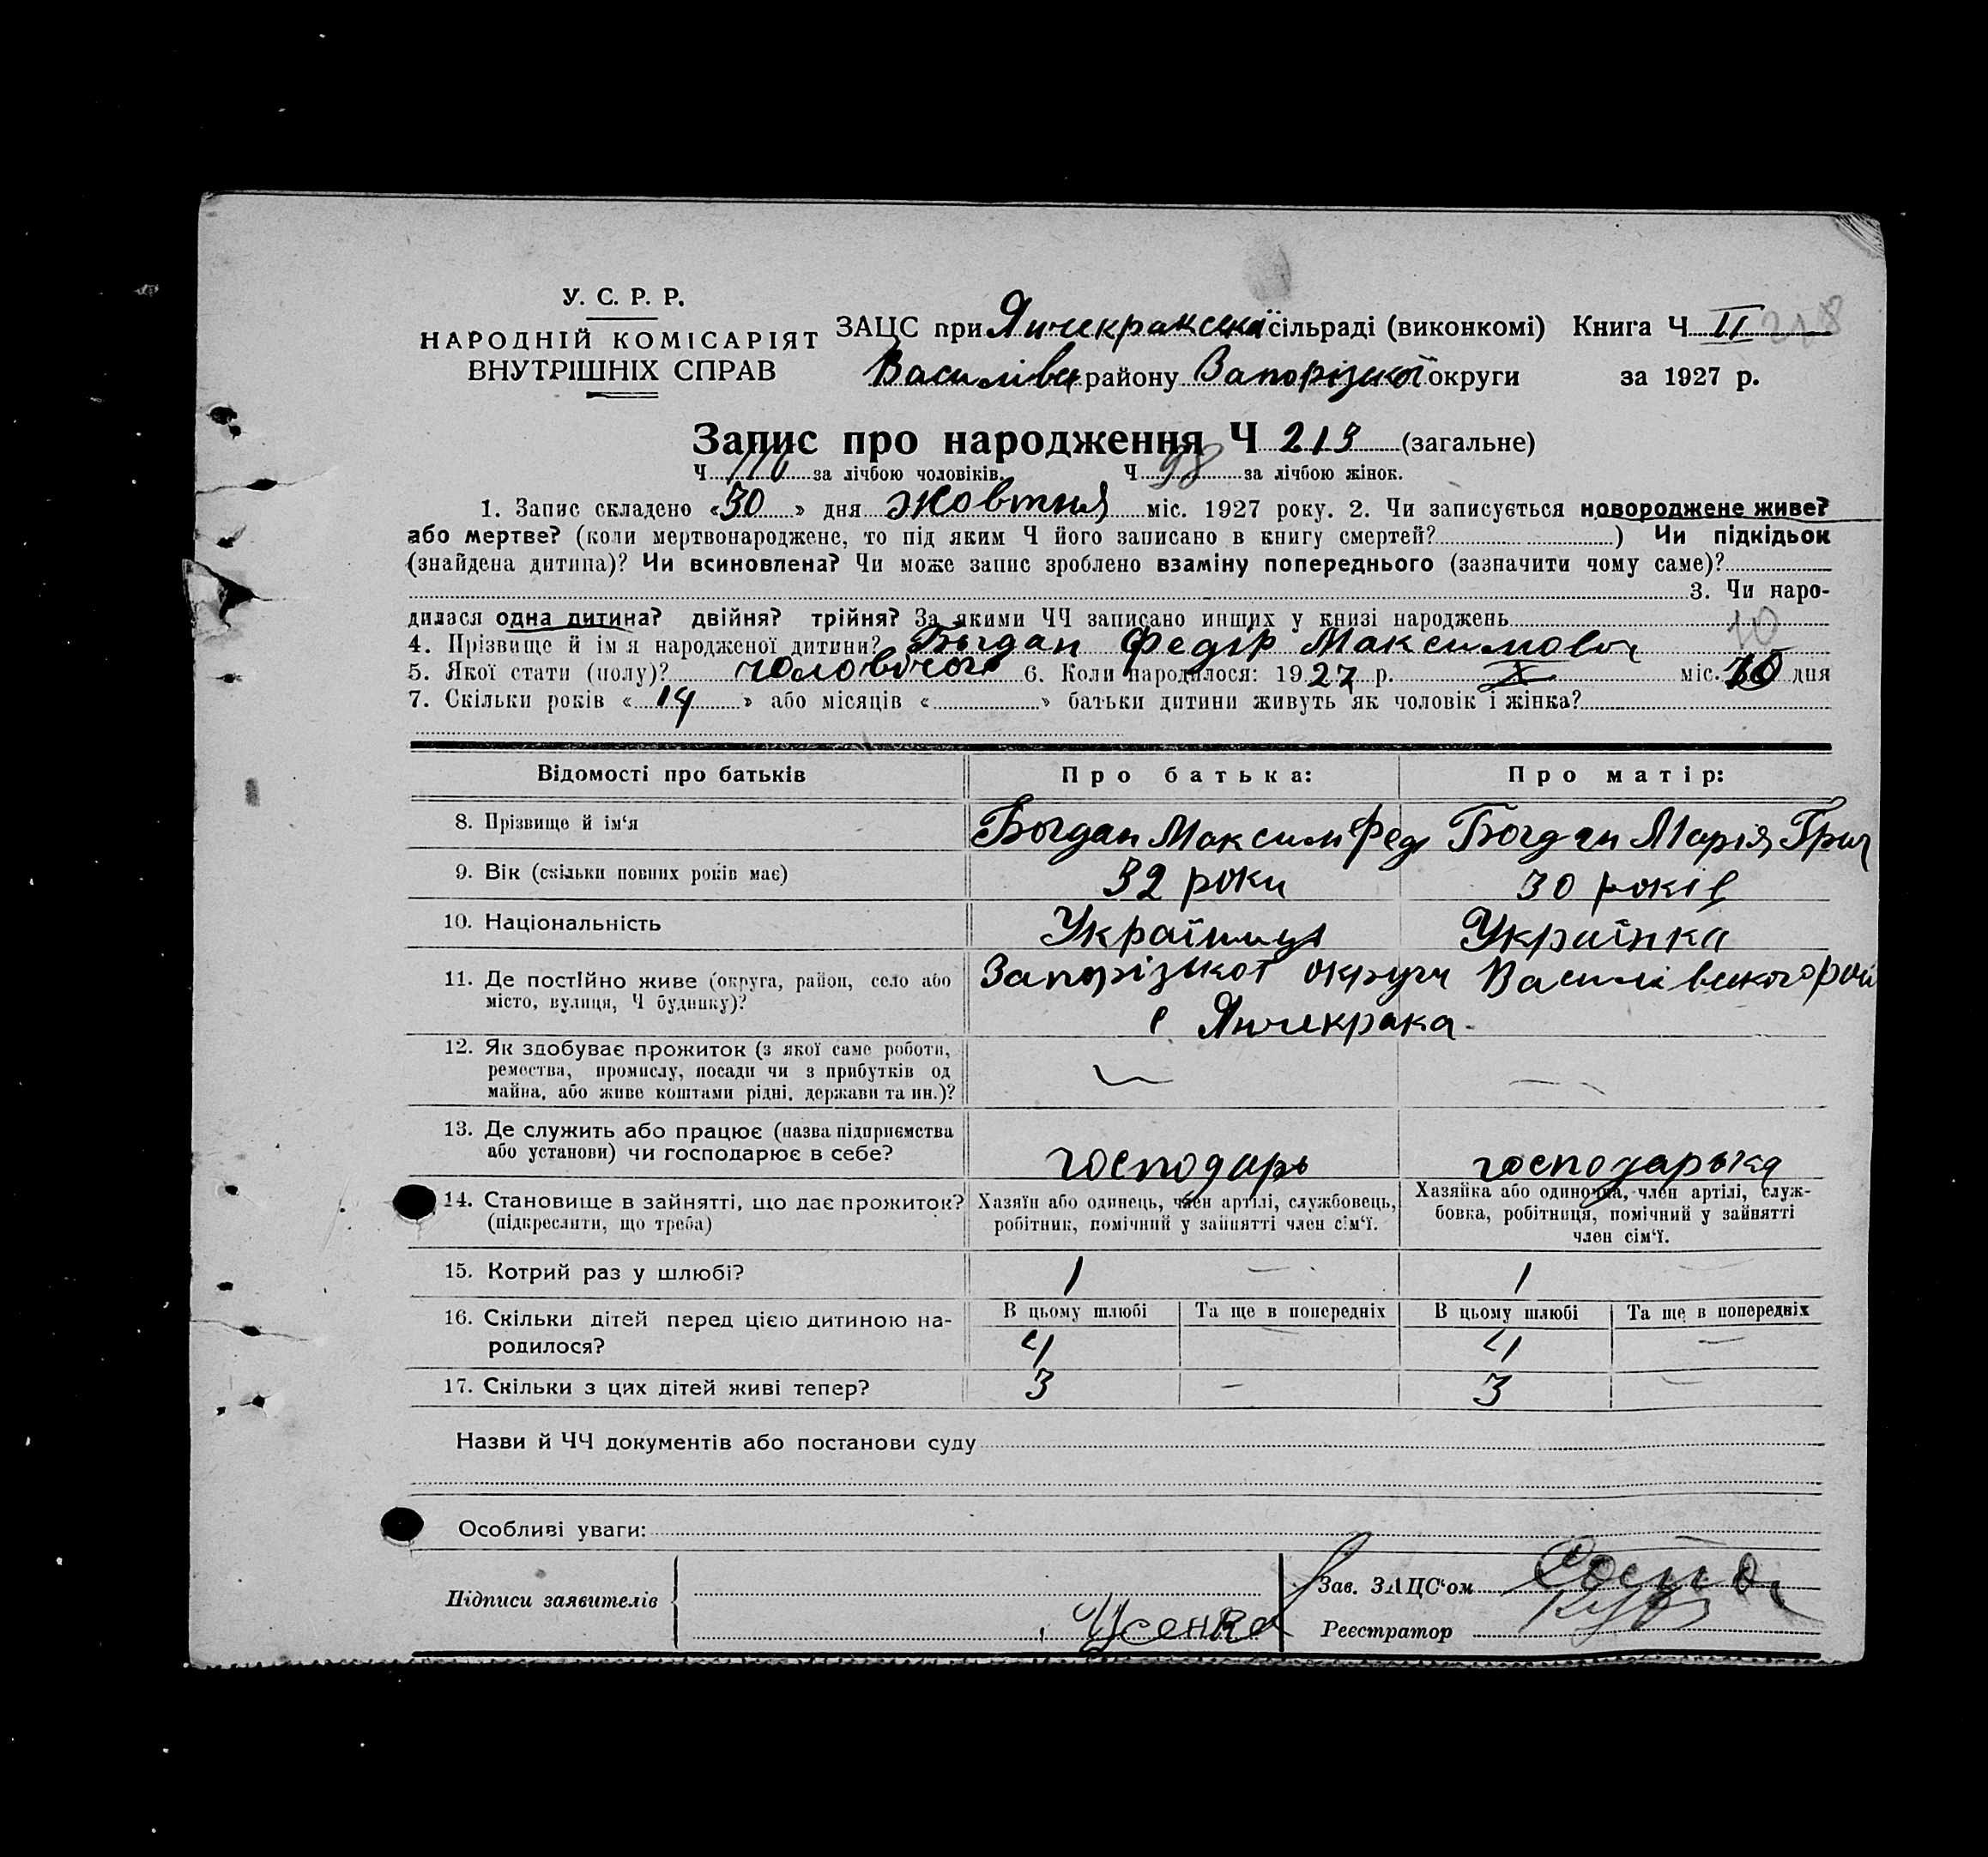 У. С. Р. Р.
НАРОДНІЙ КОМІСАРІЯТ
ВНУТРІШНІХ СПРАВ
ЗАЦС при Янчекракській сільраді (виконкомі) Книга Ч II 218
Василівськ району Запорізької округи за 1927 р.
Запис про народження Ч 213 (загальне)
Ч 116 за лічбою чоловіків. Ч 98 за лічбою жінок.
1. Запис складено «30» дня жовтня міс. 1927 року. 2. Чи записується новороджене живе?
або мертве? (коли мертвонароджене, то під яким Ч його записано в книгу смертей? ) Чи підкідьок
(знайдена дитина)? Чи всиновлена? Чи може запис зроблено взаміну попереднього (зазначити чому саме)?
3. Чи наро-
дилася одна дитина? двійня? трійня? За якими ЧЧ записано инших у книзі народжень
10
4. Прізвище й імя народженої дитини? Богдан Федір Максимович
5. Якої стати (полу)? чоловічого 6. Коли народилося: 1927 р. X міс. 10 дня
7. Скільки років «14» або місяців « » батьки дитини живуть як чоловік і жінка?
Відомості про батьків Про батька: Про матір:
8. Прізвище й ім'я Богдан Максим Фед Богдан Марія Григ
9. Вік (скільки повних років має) 32 роки 30 років
10. Національність Українець Українка
11. Де постійно живе (округа, район, село або Запорізької округи Василівського рай
місто, вулиця, Ч будинку)? с Янчекрака
12. Як здобуває прожиток (з якої саме роботи, — —
ремества, промислу, посади чи з прибутків од
майна, або живе коштами рідні, держави та ин.)?
13. Де служить або працює (назва підприємства
або установи) чи господарює в себе? господарь господарька
14. Становище в зайнятті, що дає прожиток? Хазяїн або одинець, член артілі, службовець, Хазяйка або одиночка, член артілі, служ-
(підкреслити, що треба) робітник, помічний у зайнятті член сім'ї. бовка, робітниця, помічний у зайнятті
член сім'ї.
15. Котрий раз у шлюбі? 1 — 1 —
16. Скільки дітей перед цією дитиною на- В цьому шлюбі Та ще в попередніх В цьому шлюбі Та ще в попередніх
родилося? 4 — 4 —
17. Скільки з цих дітей живі тепер? 3 — 3 —
Назви й ЧЧ документів або постанови суду
Особливі уваги:
Підписи заявителів
Зав. ЗАЦС'ом
Усенко
Реєстратор